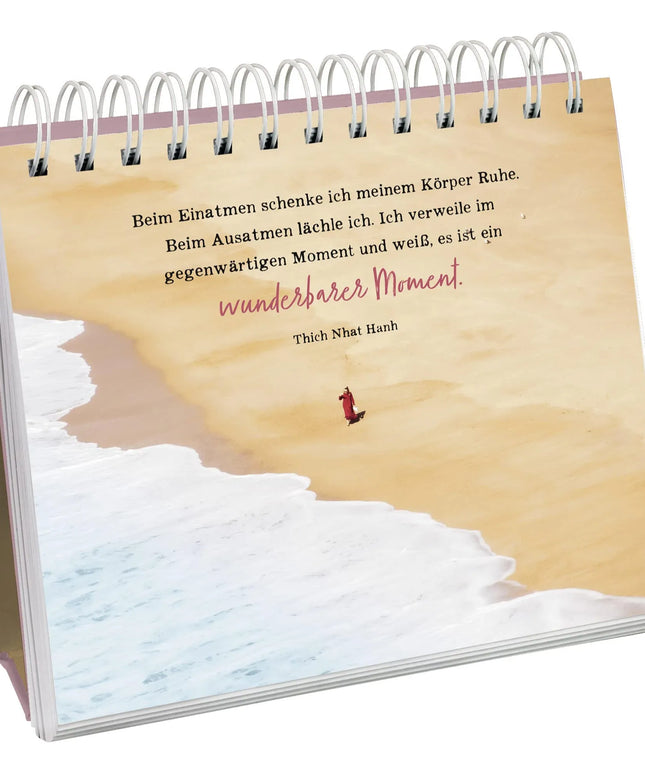 Beim Einatmen schenke ich meinem Körper Ruhe.
Beim Ausatmen lächle ich. Ich verweile im
gegenwärtigen Moment und weiß, es ist ein
wunderbarer Moment.
Thich Nhat Hanh